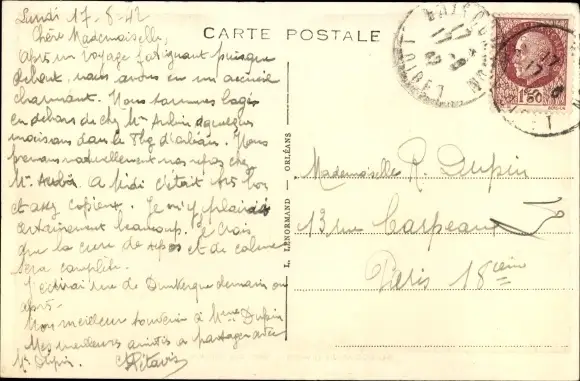 Lundi 17-8-42
Chère Mademoiselle,
Après un voyage fatiguant puisque
debout, nous avons eu un accueil
charmant. Nous sommes logés
en dehors de chez Mr Aubin à quelques
maisons dans le Fbg d'orléans. Nous
prenons naturellement nos repas chez
Mr Aubin. A midi c'était très bon
et assez copieux. Je m'y plairai
certainement beaucoup. Je crois
que la cure de repos et de calme
sera complète.
J'écrirai rue de Dunkerque demain ou
après.
Mon meilleur souvenir à Mme Dupin
Mes meilleures amitiés à partager avec
Mr Dupin.
CARTE POSTALE
L. LENORMAND - ORLÉANS
Mademoiselle R. Dupin
13 rue Carpeaux
Paris 18ième
1F50
LOIRET